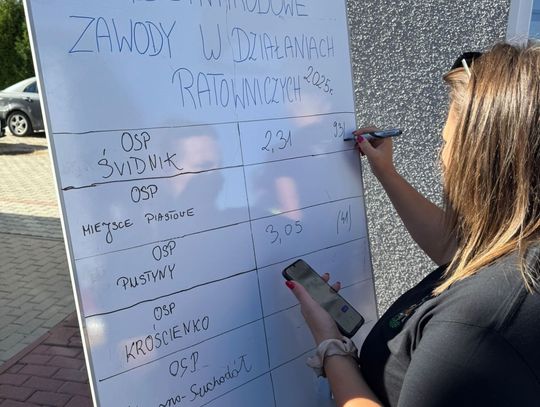 ZAWODY W DZIAŁANIACH
RATOWNICZYCH 2025r.
OSP
ŚVIDNIK
2,31
931
OSP
MIEJSCE PIASTOWE
OSP
PUSTYNY
3,05
OSP
KROŚCIENKO
OSP